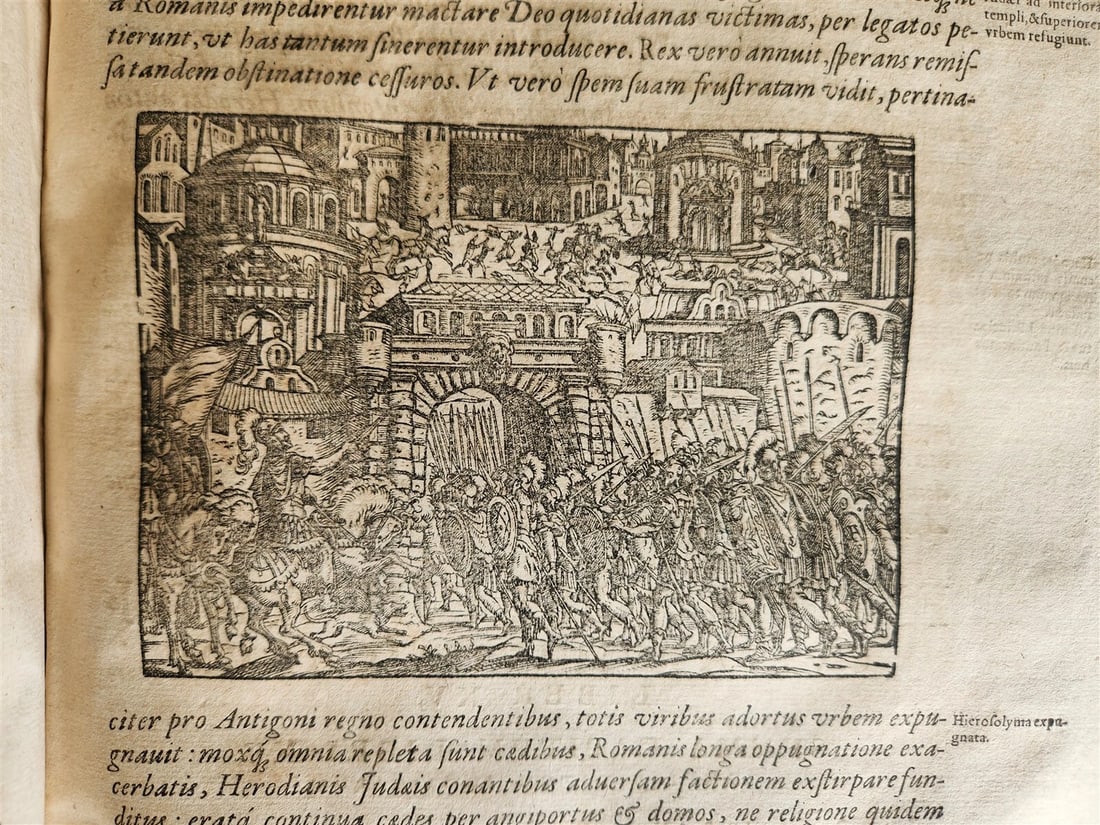 a Romanis impedirentur mactare Deo quotidianas victimas, per legatos pe-
tierunt, vt has tantum sinerentur introducere. Rex verò annuit, sperans remis-
sa tandem obstinatione cessuros. Vt verò spem suam frustratam vidit, pertina-
ad interiora
templi, & superiorem
vrbem refugiunt.
citer pro Antigoni regno contendentibus, totis viribus adortus vrbem expu-
gnauit: moxq́; omnia repleta sunt cædibus, Romanis longa oppugnatione exa-
cerbatis, Herodianis Judæis conantibus aduersam factionem exstirpare fun-
ditus: eratq́; continua cædes per angiportus & domos, ne religione quidem
Hierosolyma expu-
gnata.